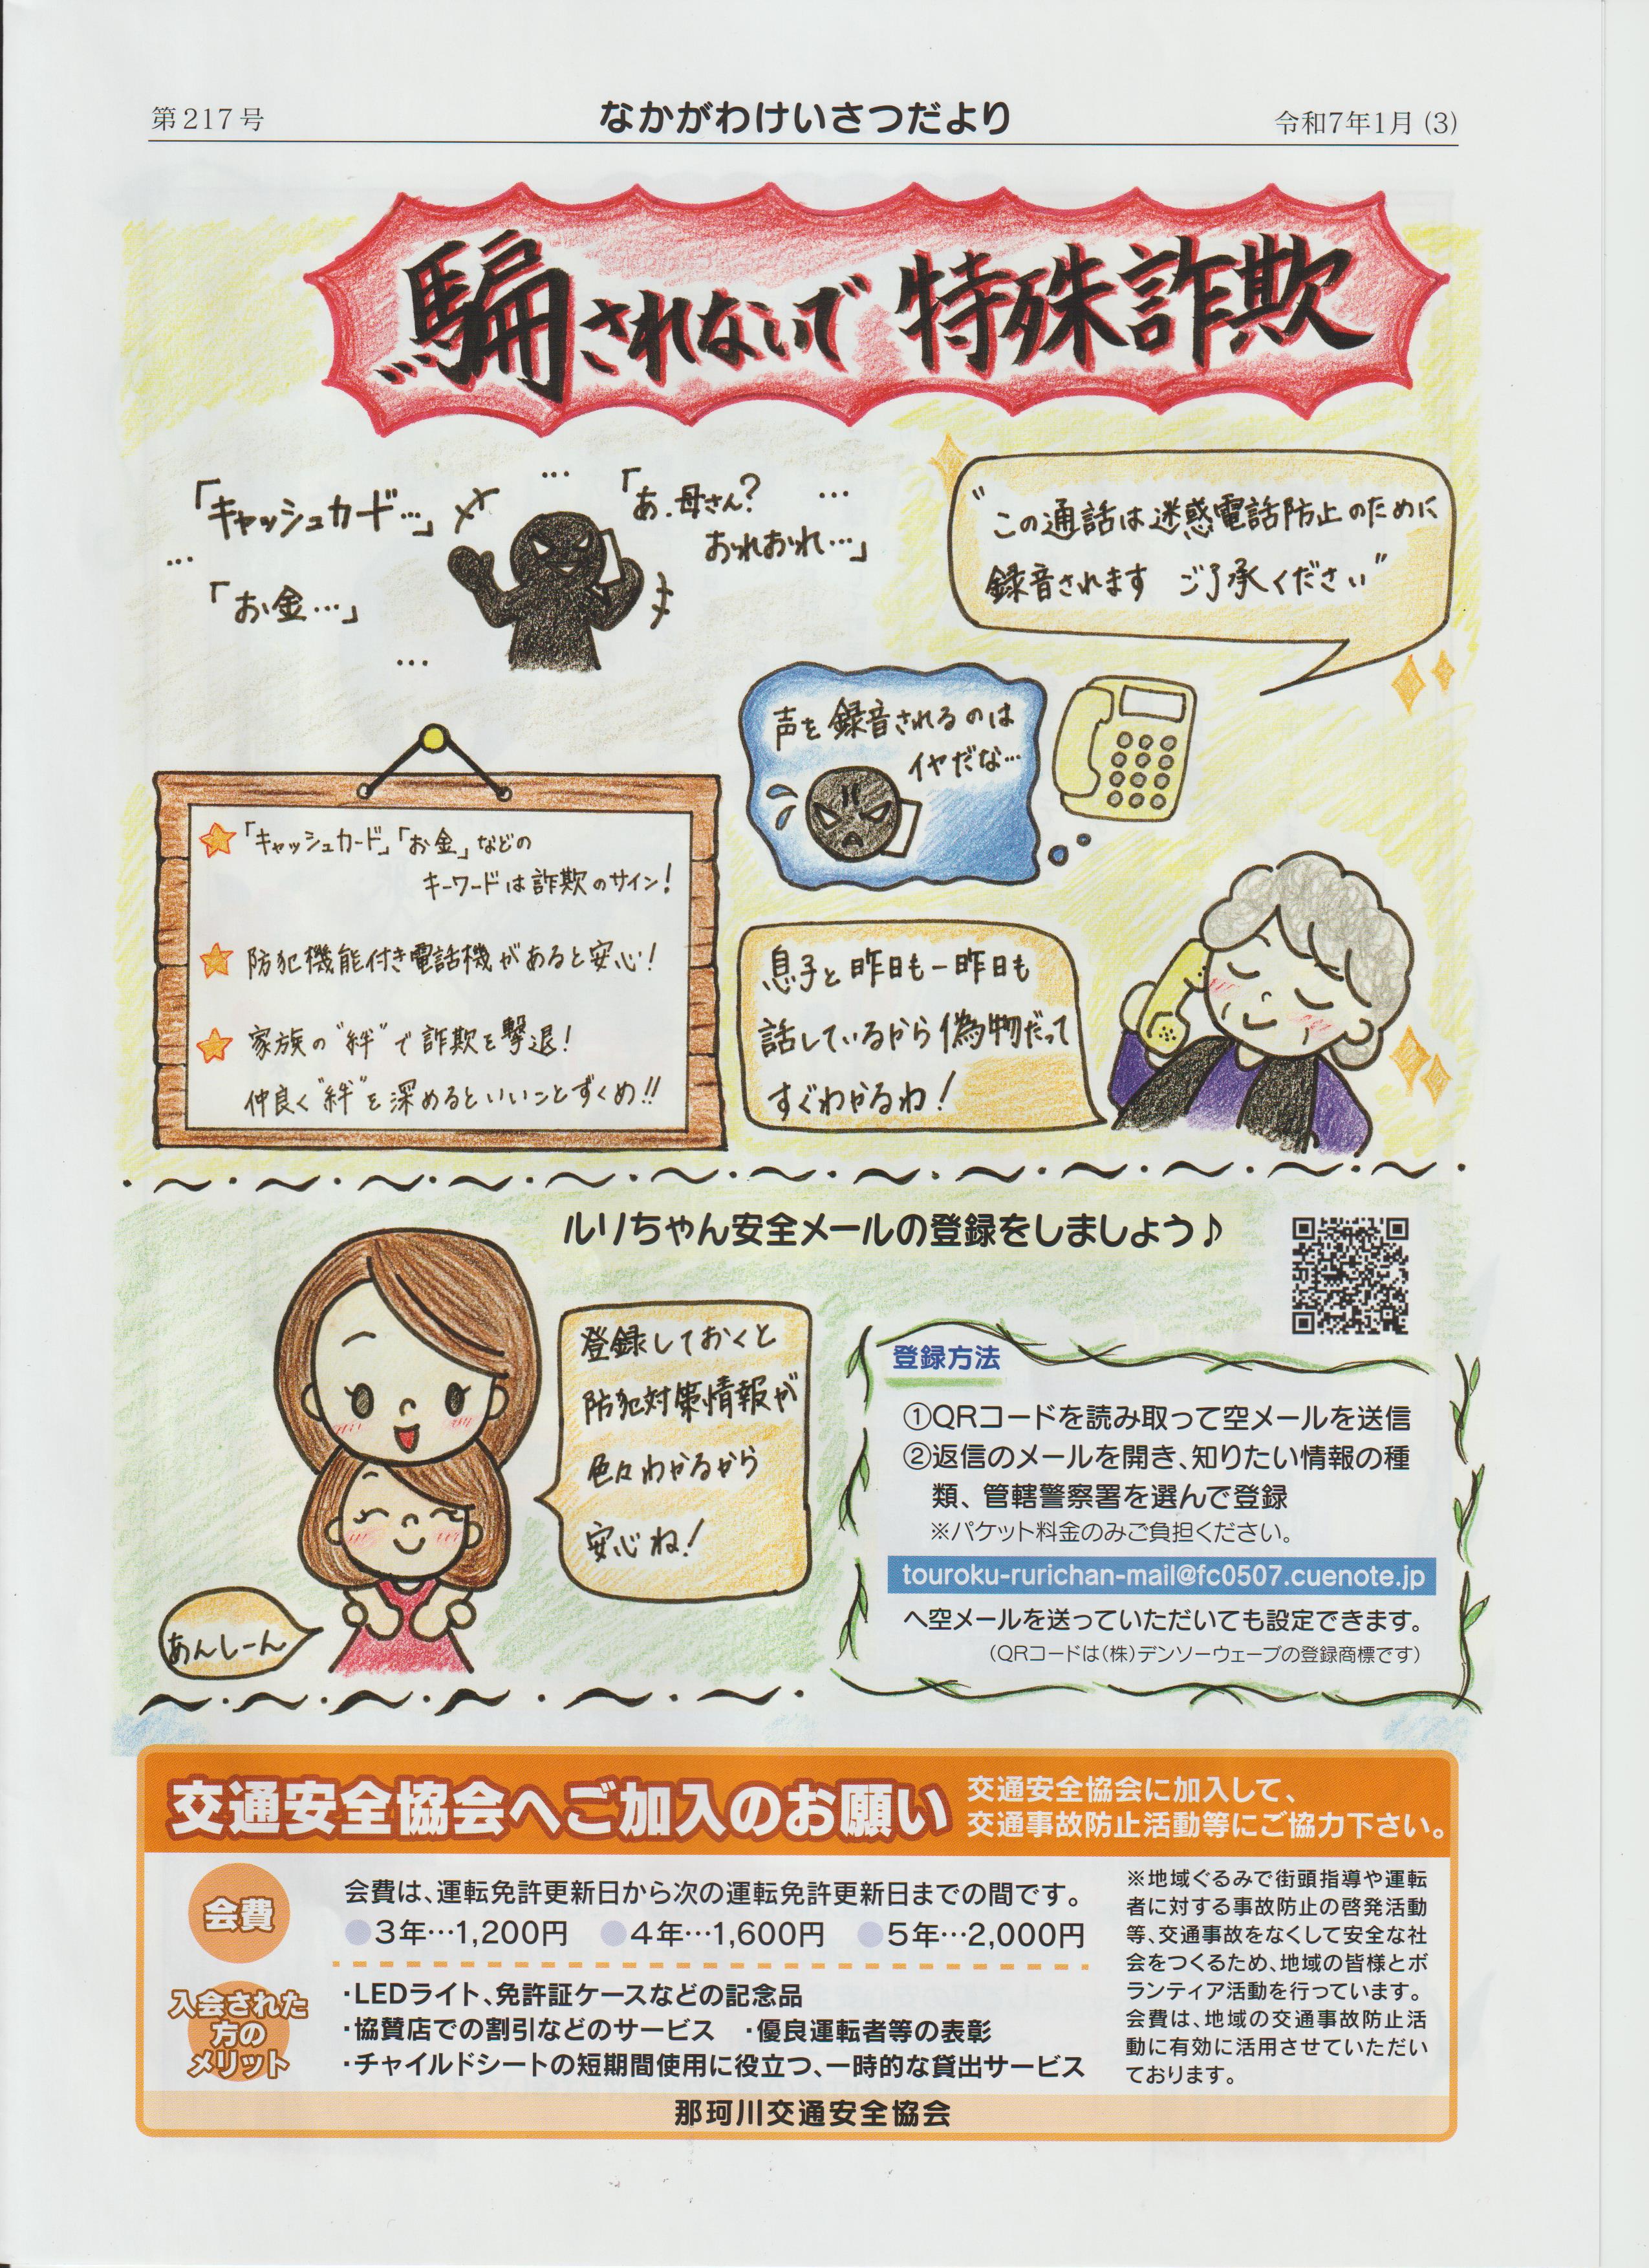 第217号
なかがわけいさつだより
令和7年1月 (3)
騙されないで 特殊詐欺
「キャッシュカード…」
…
「あ、母さん?
…
おれおれ…」
…
「お金…」
…
"この通話は迷惑電話防止のために
録音されます ご了承ください"
声を録音されるのは
イヤだな…
★「キャッシュカード」「お金」などの
キーワードは詐欺のサイン!
★防犯機能付き電話機があると安心!
★家族の"絆"で詐欺を撃退!
仲良く"絆"を深めるといいことずくめ!!
息子と昨日も一昨日も
話しているから偽物だって
すぐわかるわ!
ルリちゃん安全メールの登録をしましょう♪
登録しておくと
防犯対策情報が
色々わかるから
安心ね!
あんしーん
登録方法
①QRコードを読み取って空メールを送信
②返信のメールを開き、知りたい情報の種
類、管轄警察署を選んで登録
※パケット料金のみご負担ください。
touroku-rurichan-mail@fc0507.cuenote.jp
へ空メールを送っていただいても設定できます。
(QRコードは(株)デンソーウェーブの登録商標です)
交通安全協会へご加入のお願い
交通安全協会に加入して、
交通事故防止活動等にご協力下さい。
会費
会費は、運転免許更新日から次の運転免許更新日までの間です。
●3年…1,200円 ●4年…1,600円 ●5年…2,000円
入会された
方の
メリット
・LEDライト、免許証ケースなどの記念品
・協賛店での割引などのサービス ・優良運転者等の表彰
・チャイルドシートの短期間使用に役立つ、一時的な貸出サービス
※地域ぐるみで街頭指導や運転
者に対する事故防止の啓発活動
等、交通事故をなくして安全な社
会をつくるため、地域の皆様とボ
ランティア活動を行っています。
会費は、地域の交通事故防止活
動に有効に活用させていただい
ております。
那珂川交通安全協会